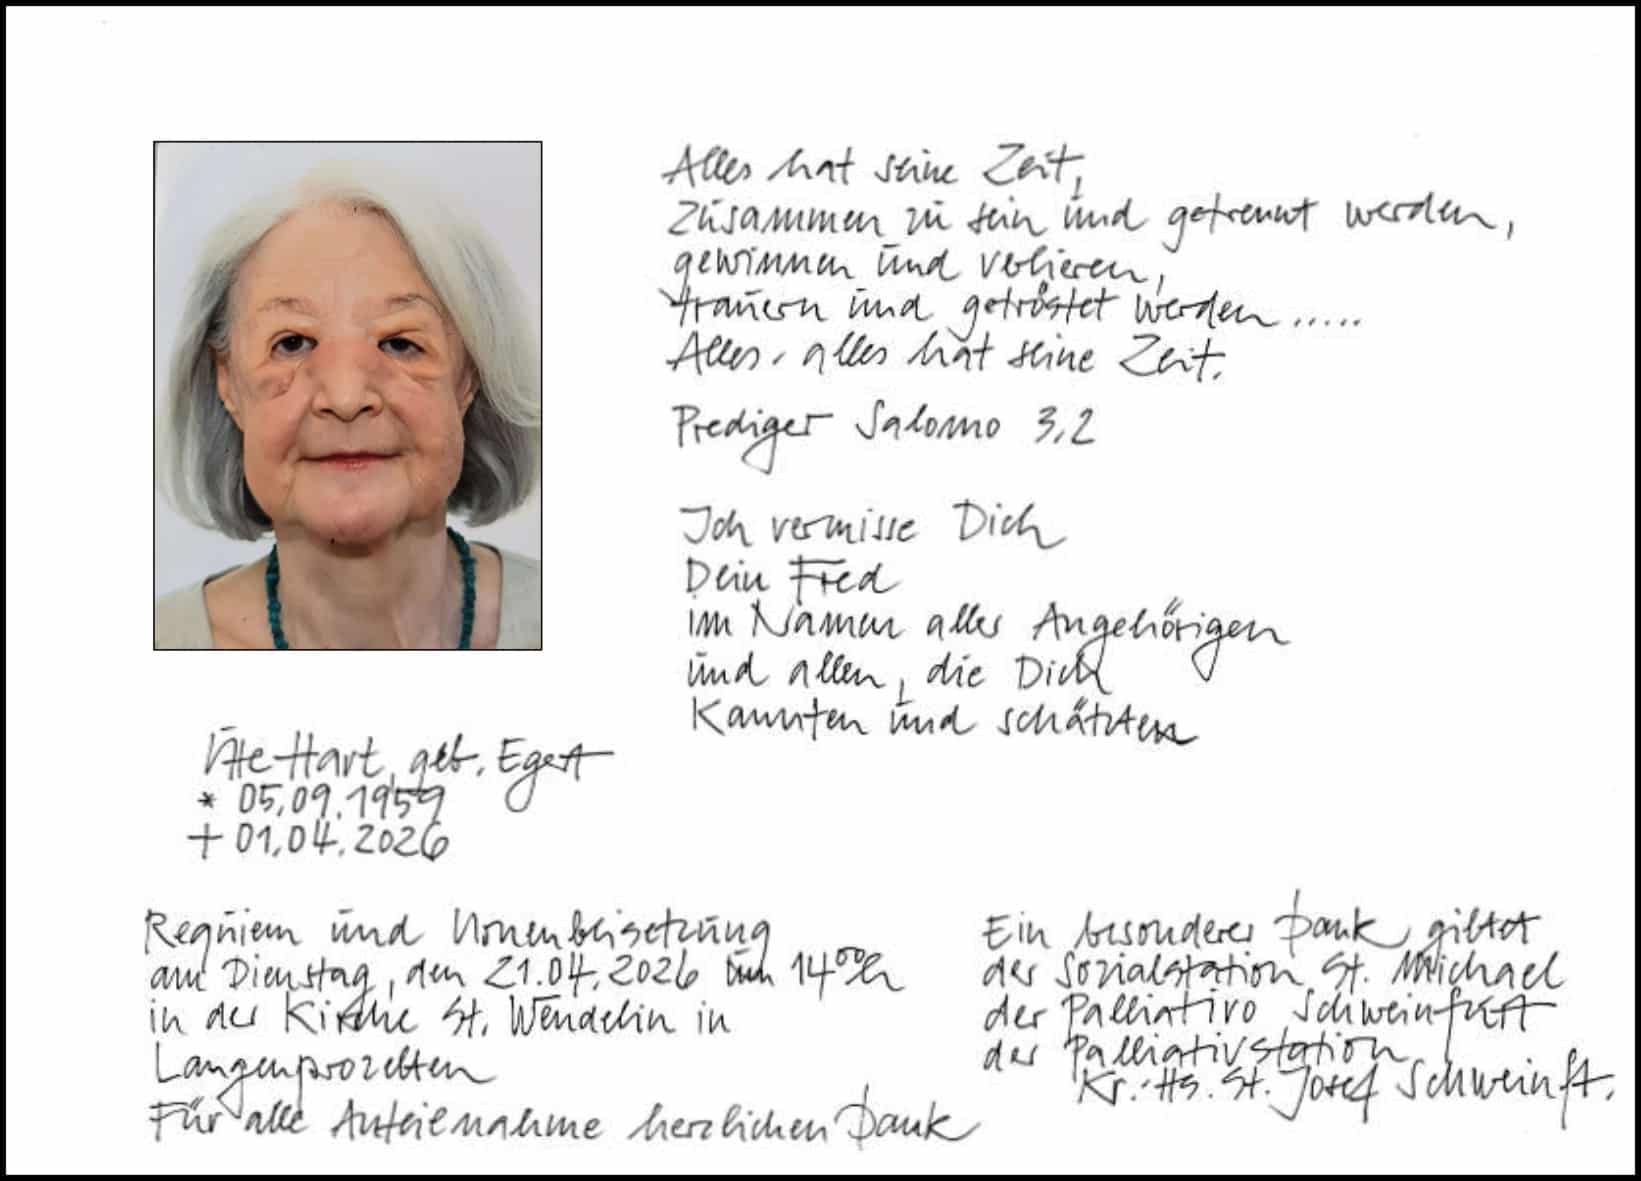 Alles hat seine Zeit,
zusammen zu sein und getrennt werden,
gewinnen und verlieren,
trauern und getröstet werden.....
Alles, alles hat seine Zeit.
Prediger Salomo 3,2
Ich vermisse Dich
Dein Fred
im Namen aller Angehörigen
und allen, die Dich
kannten und schätzten
Ute Hart, geb. Egert
* 05.09.1959
+ 01.04.2026
Requiem und Urnenbeisetzung
am Dienstag, den 21.04.2026 um 14⁰⁰h
in der Kirche St. Wendelin in
Langenprozelten
Für alle Anteilnahme herzlichen Dank
Ein besonderer Dank giltet
der Sozialstation St. Michael
der Palliativo Schweinfurt
der Palliativstation
Kr.-Hs. St. Josef Schweinft.